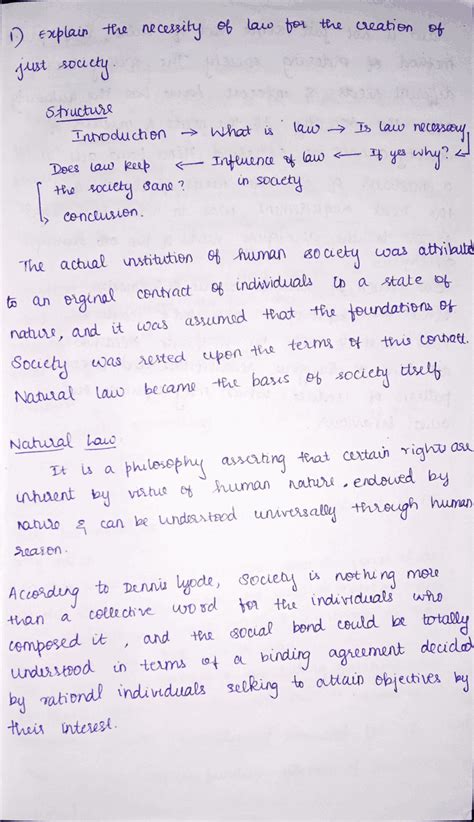 1) Explain the necessity of law for the creation of
just society.
Structure
Introduction → What is law → Is law necessary
Does law keep ← Inference of law ← If yes why?
the society sane? in society
conclusion.
The actual institution of human society was attributed
to an orginal contract of individuals in a state of
nature, and it was assumed that the foundations of
Society was rested upon the terms of this
Natural law became the basis of society itself.
Natural Law
It is a philosophy asserting that certain rights are
inherent by virtue of human nature, endowed by
nature & can be understood universally through human
reason.
According to Dennis Lyode, Society is nothing more
than a collective word for the individuals who
composed it, and the social bond could be totally
understood in terms of a binding agreement decided
by rational individuals seeking to attain objectives by
their interest.